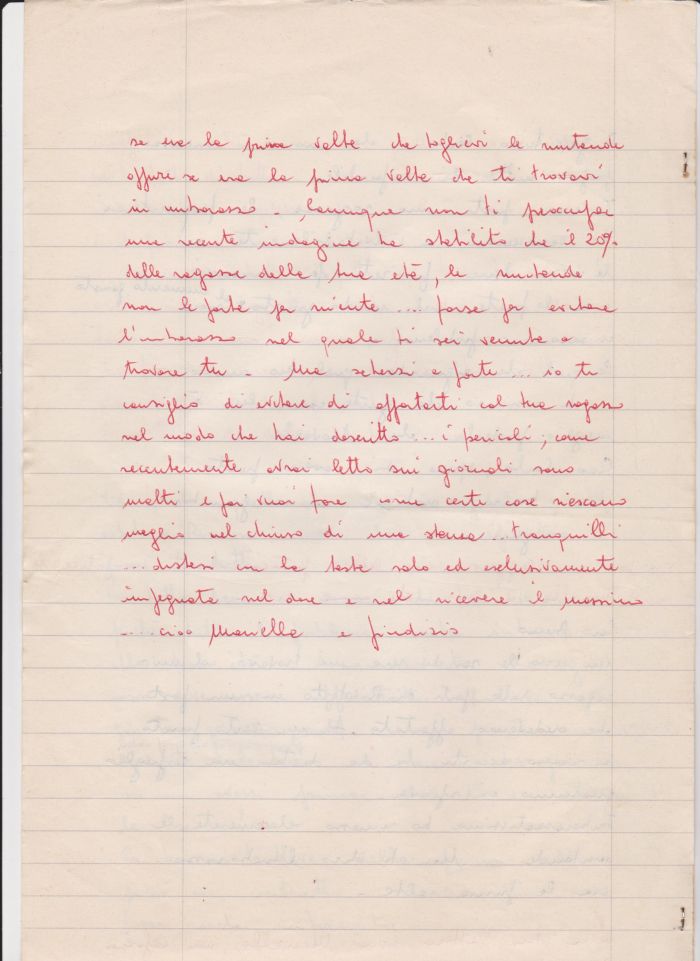 se era la prima volta che toglievi le mutande
oppure se era la prima volta che ti trovavi
in imbarazzo - Comunque non ti preoccupare
una recente indagine ha stabilito che il 20%
delle ragazze della tua età, le mutande
non le porta per niente .... forse per evitare
l'imbarazzo nel quale ti sei venuta a
trovare tu - Ma scherzi a parte ... io ti
consiglio di evitare di appartarti col tuo ragazzo
nel modo che hai descritto ... i pericoli, come
recentemente avrai letto sui giornali sono
molti e poi vuoi fare come certe cose riescono
meglio nel chiuso di una stanza ... tranquilli
... distesi con la testa solo ed esclusivamente
impegnata nel dare e nel ricevere il massimo
.... ciao Mariella e giudizio